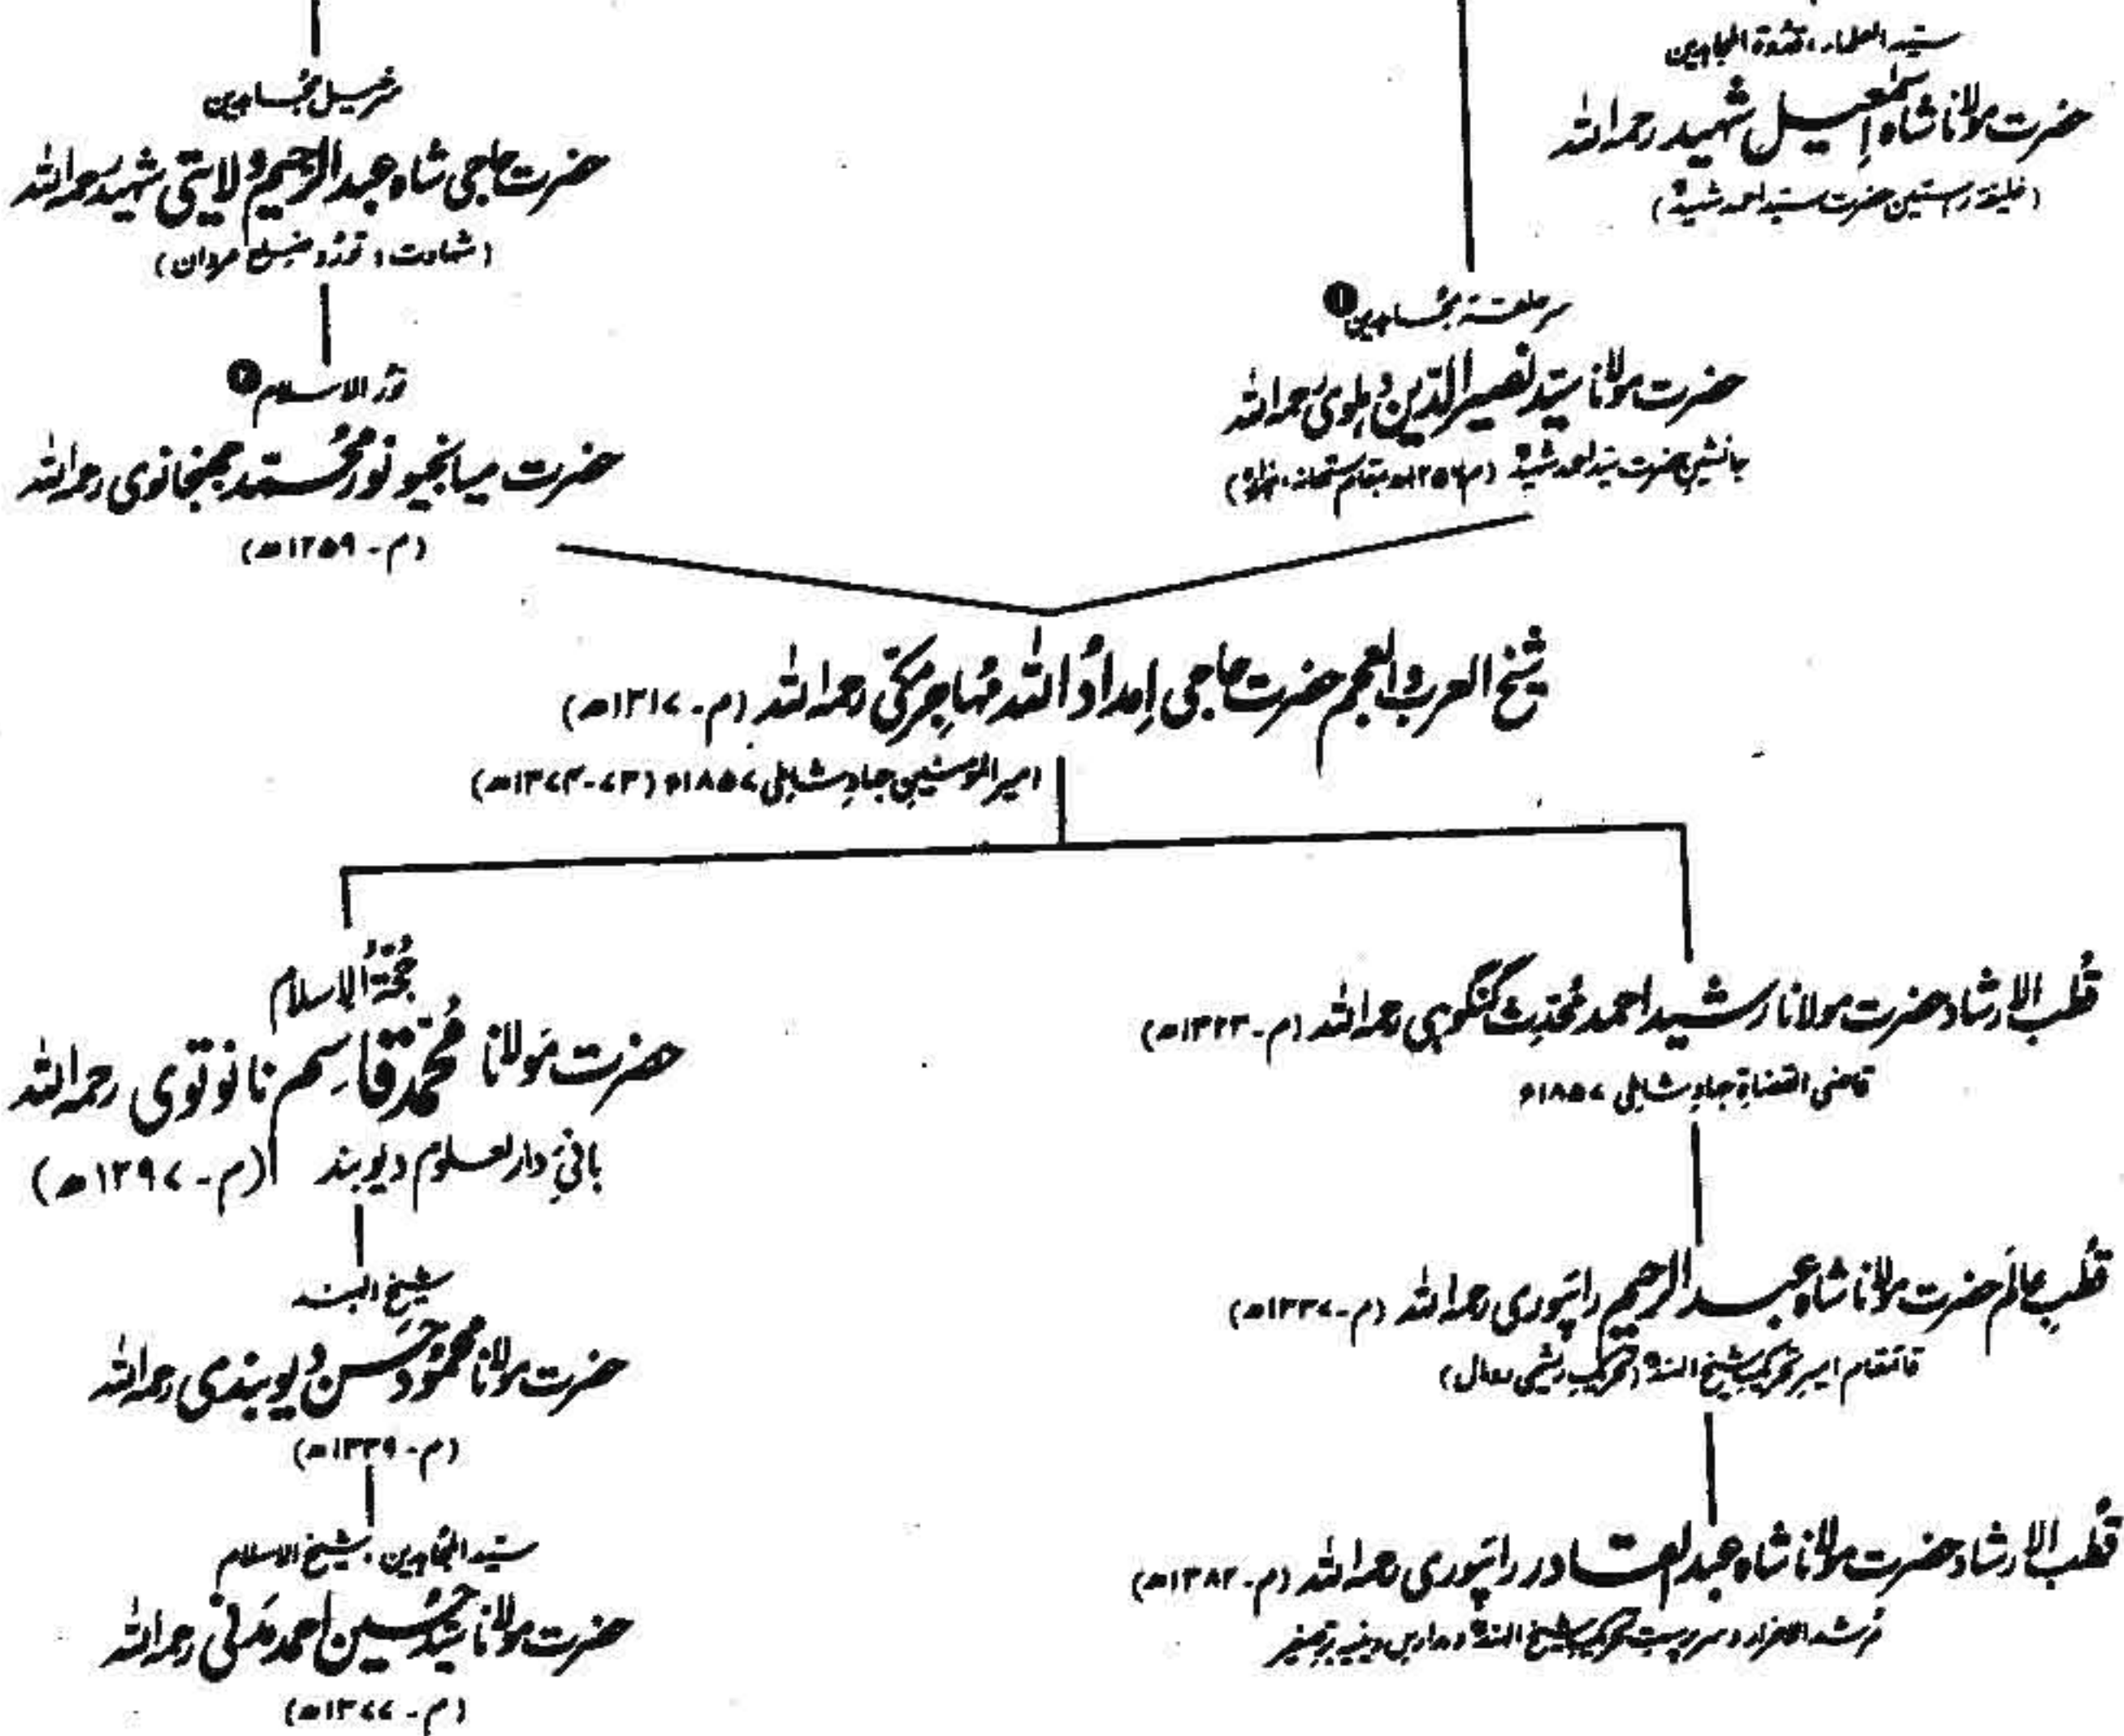 سید العلماء، قدوۃ المجاہدین
حضرت مولانا شاہ اسمٰعیل شہید رحمہ اللہ
(خلیفۂ راستین حضرت سید احمد شہیدؒ)
سرخیل مجاہدین
حضرت حاجی شاہ عبدالرحیم ولایتی شہید رحمہ اللہ
(شہادت : تورڈو ضلع مردان)
سرحلقۂ مجاہدین ①
حضرت مولانا سید نصیرالدین دہلوی رحمہ اللہ
جانشین حضرت سید احمد شہیدؒ (م ۱۲۵۶ھ بمقام ستھانہ،
نور الاسلام ②
حضرت میانجیو نور محمد جھنجھانوی رحمہ اللہ
(م - ۱۲۵۹ھ)
شیخ العرب والعجم حضرت حاجی اِمدادُ اللہ مُہاجِر مکّی رحمہ اللہ (م - ۱۳۱۷ھ)
امیرالمومنین جہادِ شاملی ۱۸۵۷ء (۷۳-۱۲۷۴ھ)
قُطب الارشاد حضرت مولانا رشید احمد مُحدِث گنگوہی رحمہ اللہ (م - ۱۳۲۳ھ)
قاضی القضاۃ جہادِ شاملی ۱۸۵۷ء
حُجّۃُ الاسلام
حضرت مَولانا مُحمّد قاسِم نانوتوی رحمہ اللہ
بانیِٔ دارالعلوم دیوبند (م - ۱۲۹۷ھ)
قُطبِ عالَم حضرت مولانا شاہ عبدالرحیم رائپوری رحمہ اللہ (م - ۱۳۳۷ھ)
قائمقام امیرِ تحریکِ شیخ الہندؒ (تحریکِ ریشمی رومال)
شیخ الہند
حضرت مولانا محمُود حَسن دیوبندی رحمہ اللہ
(م - ۱۳۳۹ھ)
قُطب الارشاد حضرت مولانا شاہ عبدالقادر رائپوری رحمہ اللہ (م - ۱۳۸۲ھ)
مُرشد الاحرار و سرپرست تحریکِ شیخ الہندؒ و مدارسِ دینیہ برصغیر
سید المجاہدین، شیخ الاسلام
حضرت مولانا سید حُسین احمد مَدنی رحمہ اللہ
(م - ۱۳۷۷ھ)